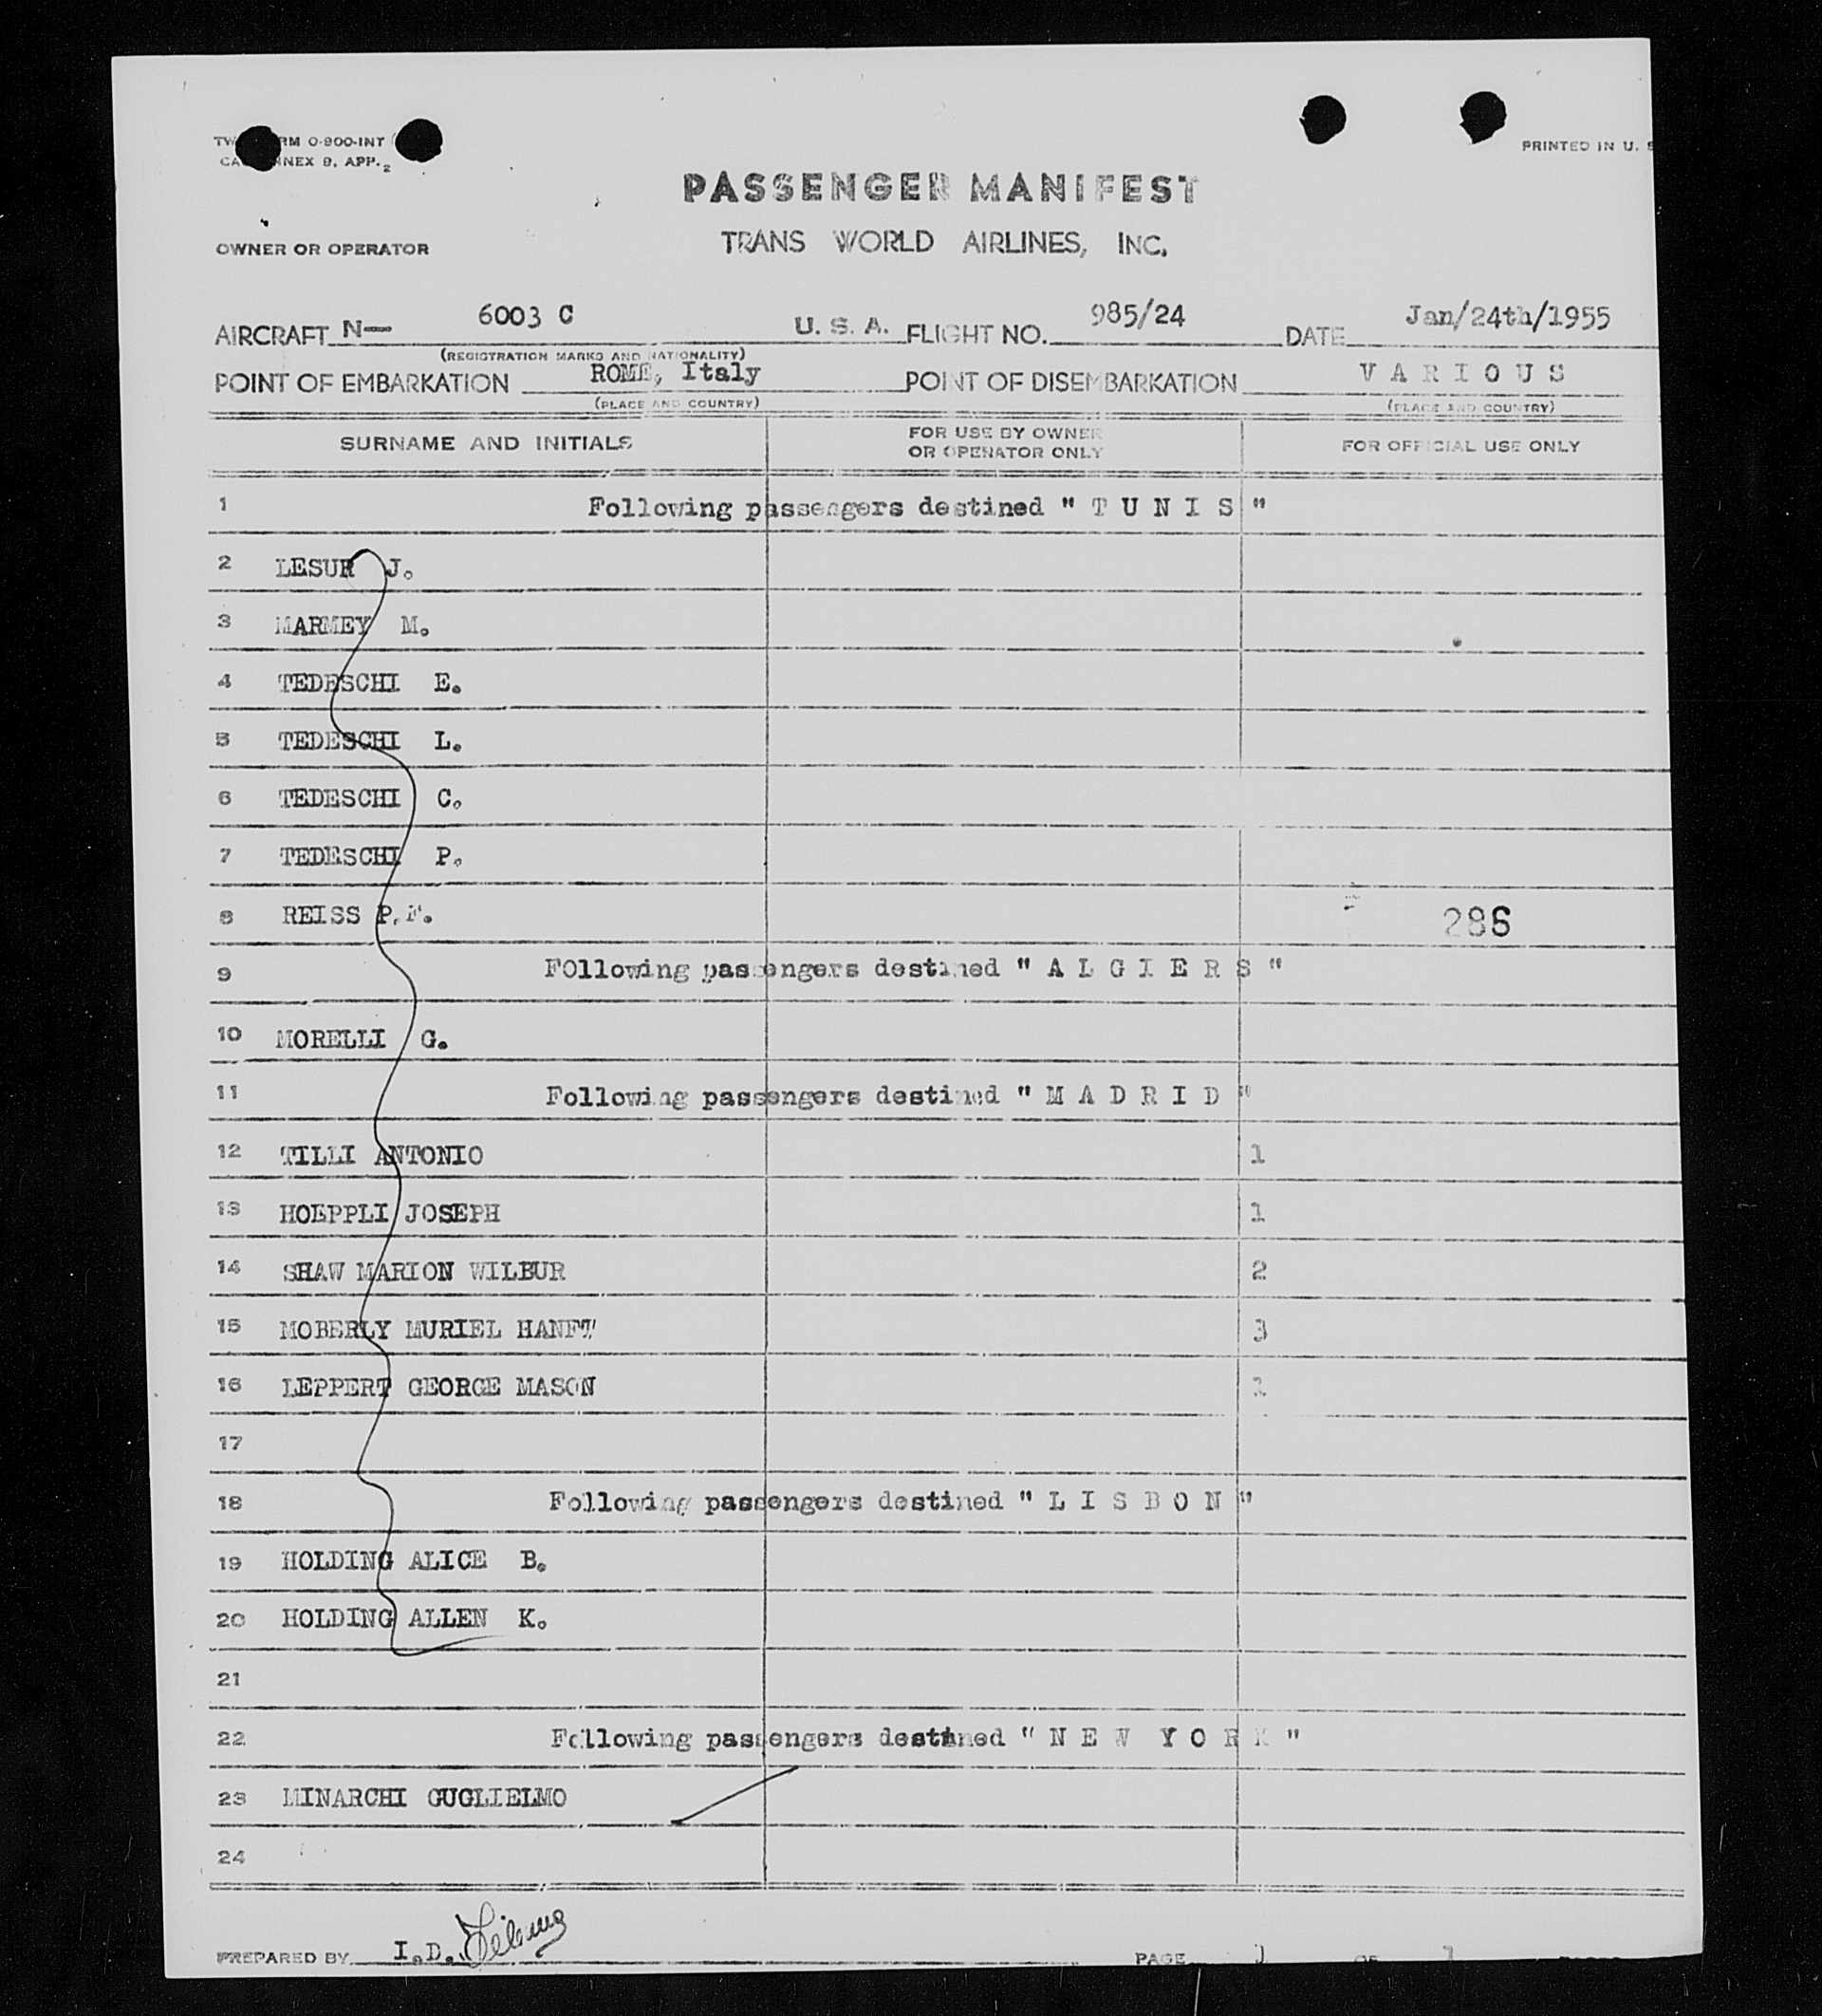 RM 0-900-INT
NNEX 9, APP. 2
PRINTED IN U. S
PASSENGER MANIFEST
OWNER OR OPERATOR
TRANS WORLD AIRLINES, INC.
AIRCRAFT N— 6003 C U. S. A. FLIGHT NO. 985/24 DATE Jan/24th/1955
(REGISTRATION MARKS AND NATIONALITY)
POINT OF EMBARKATION ROME, Italy POINT OF DISEMBARKATION V A R I O U S
(PLACE AND COUNTRY) (PLACE AND COUNTRY)
SURNAME AND INITIALS FOR USE BY OWNER OR OPERATOR ONLY FOR OFFICIAL USE ONLY
1 Following passengers destined " T U N I S "
2 LESUR J.
3 MARMEY M.
4 TEDESCHI E.
5 TEDESCHI L.
6 TEDESCHI C.
7 TEDESCHI P.
8 REISS P.F. 286
9 FOllowing passengers destined " A L G I E R S "
10 MORELLI G.
11 Following passengers destined " M A D R I D "
12 TILLI ANTONIO 1
13 HOEPPLI JOSEPH 1
14 SHAW MARION WILBUR 2
15 MOBERLY MURIEL HANFT 3
16 LEPPERT GEORGE MASON 1
17
18 Following passengers destined " L I S B O N "
19 HOLDING ALICE B.
20 HOLDING ALLEN K.
21
22 Following passengers destined " N E W Y O R K "
23 MINARCHI GUGLIELMO
24
PREPARED BY I.D. PAGE 1 OF 1